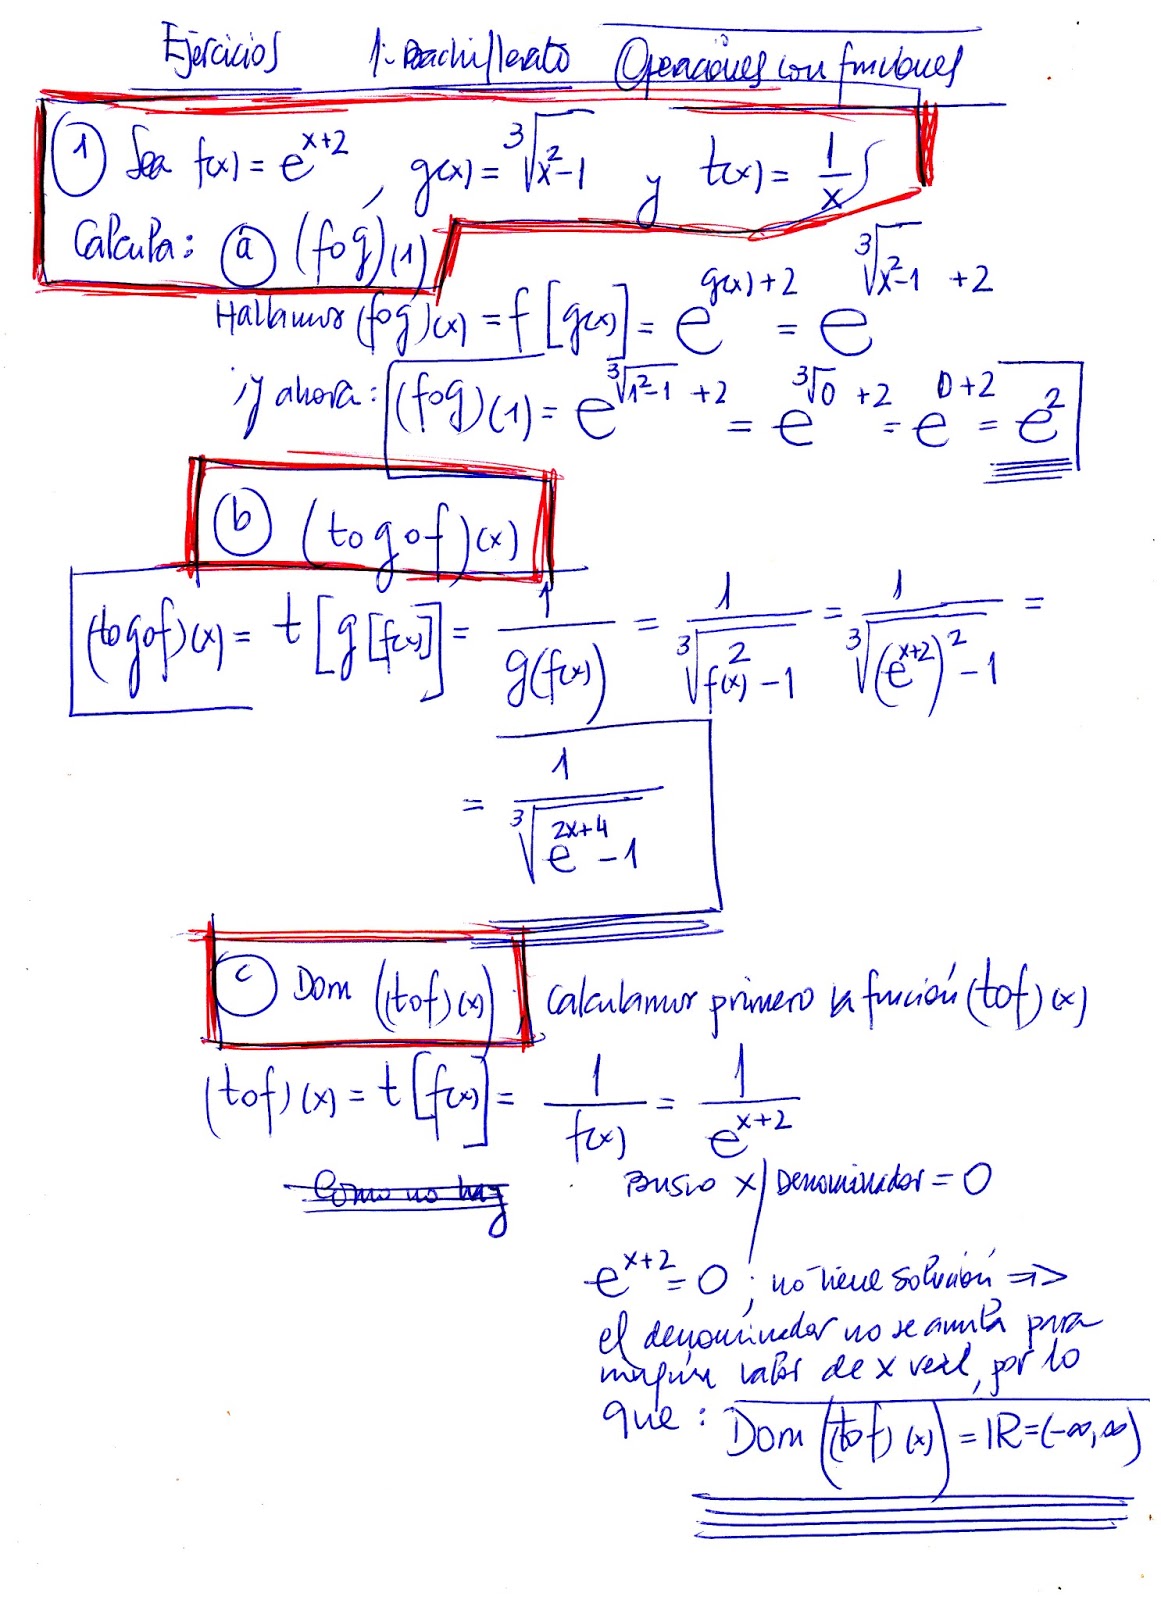 Ejercicios 1º Bachillerato Operaciones con funciones
① Sea f(x) = e^{x+2} , g(x) = ∛(x²-1) y t(x) = 1/x
Calcula: ⓐ (f∘g)(1)
Hallamos (f∘g)(x) = f[g(x)] = e^{g(x)+2} = e^{∛(x²-1) +2}
y ahora: (f∘g)(1) = e^{∛(1²-1) +2} = e^{∛0 +2} = e^{0+2} = e²
ⓑ (t∘g∘f)(x)
(t∘g∘f)(x) = t[g[f(x)]] = 1/g(f(x)) = 1/∛(f(x)²-1) = 1/∛((e^{x+2})²-1) =
= 1/∛(e^{2x+4}-1)
ⓒ Dom ((t∘f)(x)) Calculamos primero la función (t∘f)(x)
(t∘f)(x) = t[f(x)] = 1/f(x) = 1/e^{x+2}
Como no hay Busco x/ Denominador = 0
e^{x+2} = 0 ; no tiene solución =>
el denominador no se anula para
ningún valor de x real, por lo
que : Dom ((t∘f)(x)) = ℝ = (-∞, ∞)